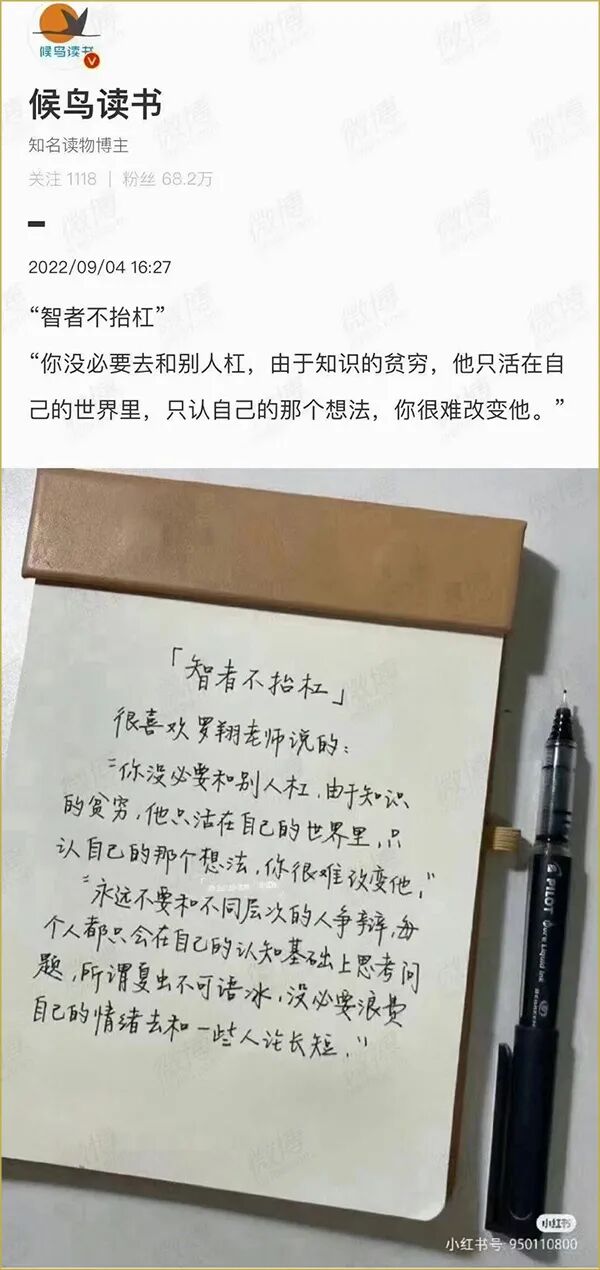 候鸟读书
候鸟读书
知名读物博主
关注 1118 | 粉丝 68.2万
2022/09/04 16:27
“智者不抬杠”
“你没必要去和别人杠，由于知识的贫穷，他只活在自
己的世界里，只认自己的那个想法，你很难改变他。”
「智者不抬杠」
很喜欢罗翔老师说的：
“你没必要和别人杠，由于知识
的贫穷，他只活在自己的世界里，只
认自己的那个想法，你很难改变他，”
“永远不要和不同层次的人争辩，每
个人都只会在自己的认知基础上思考问
题，所谓夏虫不可语冰，没必要浪费
自己的情绪去和一些人论长短，”
PILOT
小红书
小红书号: 950110800
微博